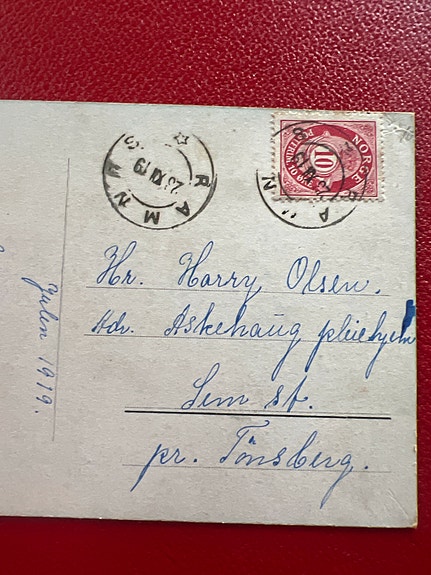 RAMNES
23 XII 19
NORGE
10
Hr. Harry Olsen.
Adr. Askehaug pleiehjem
Sem st.
pr. Tönsberg.
Julen 1919.